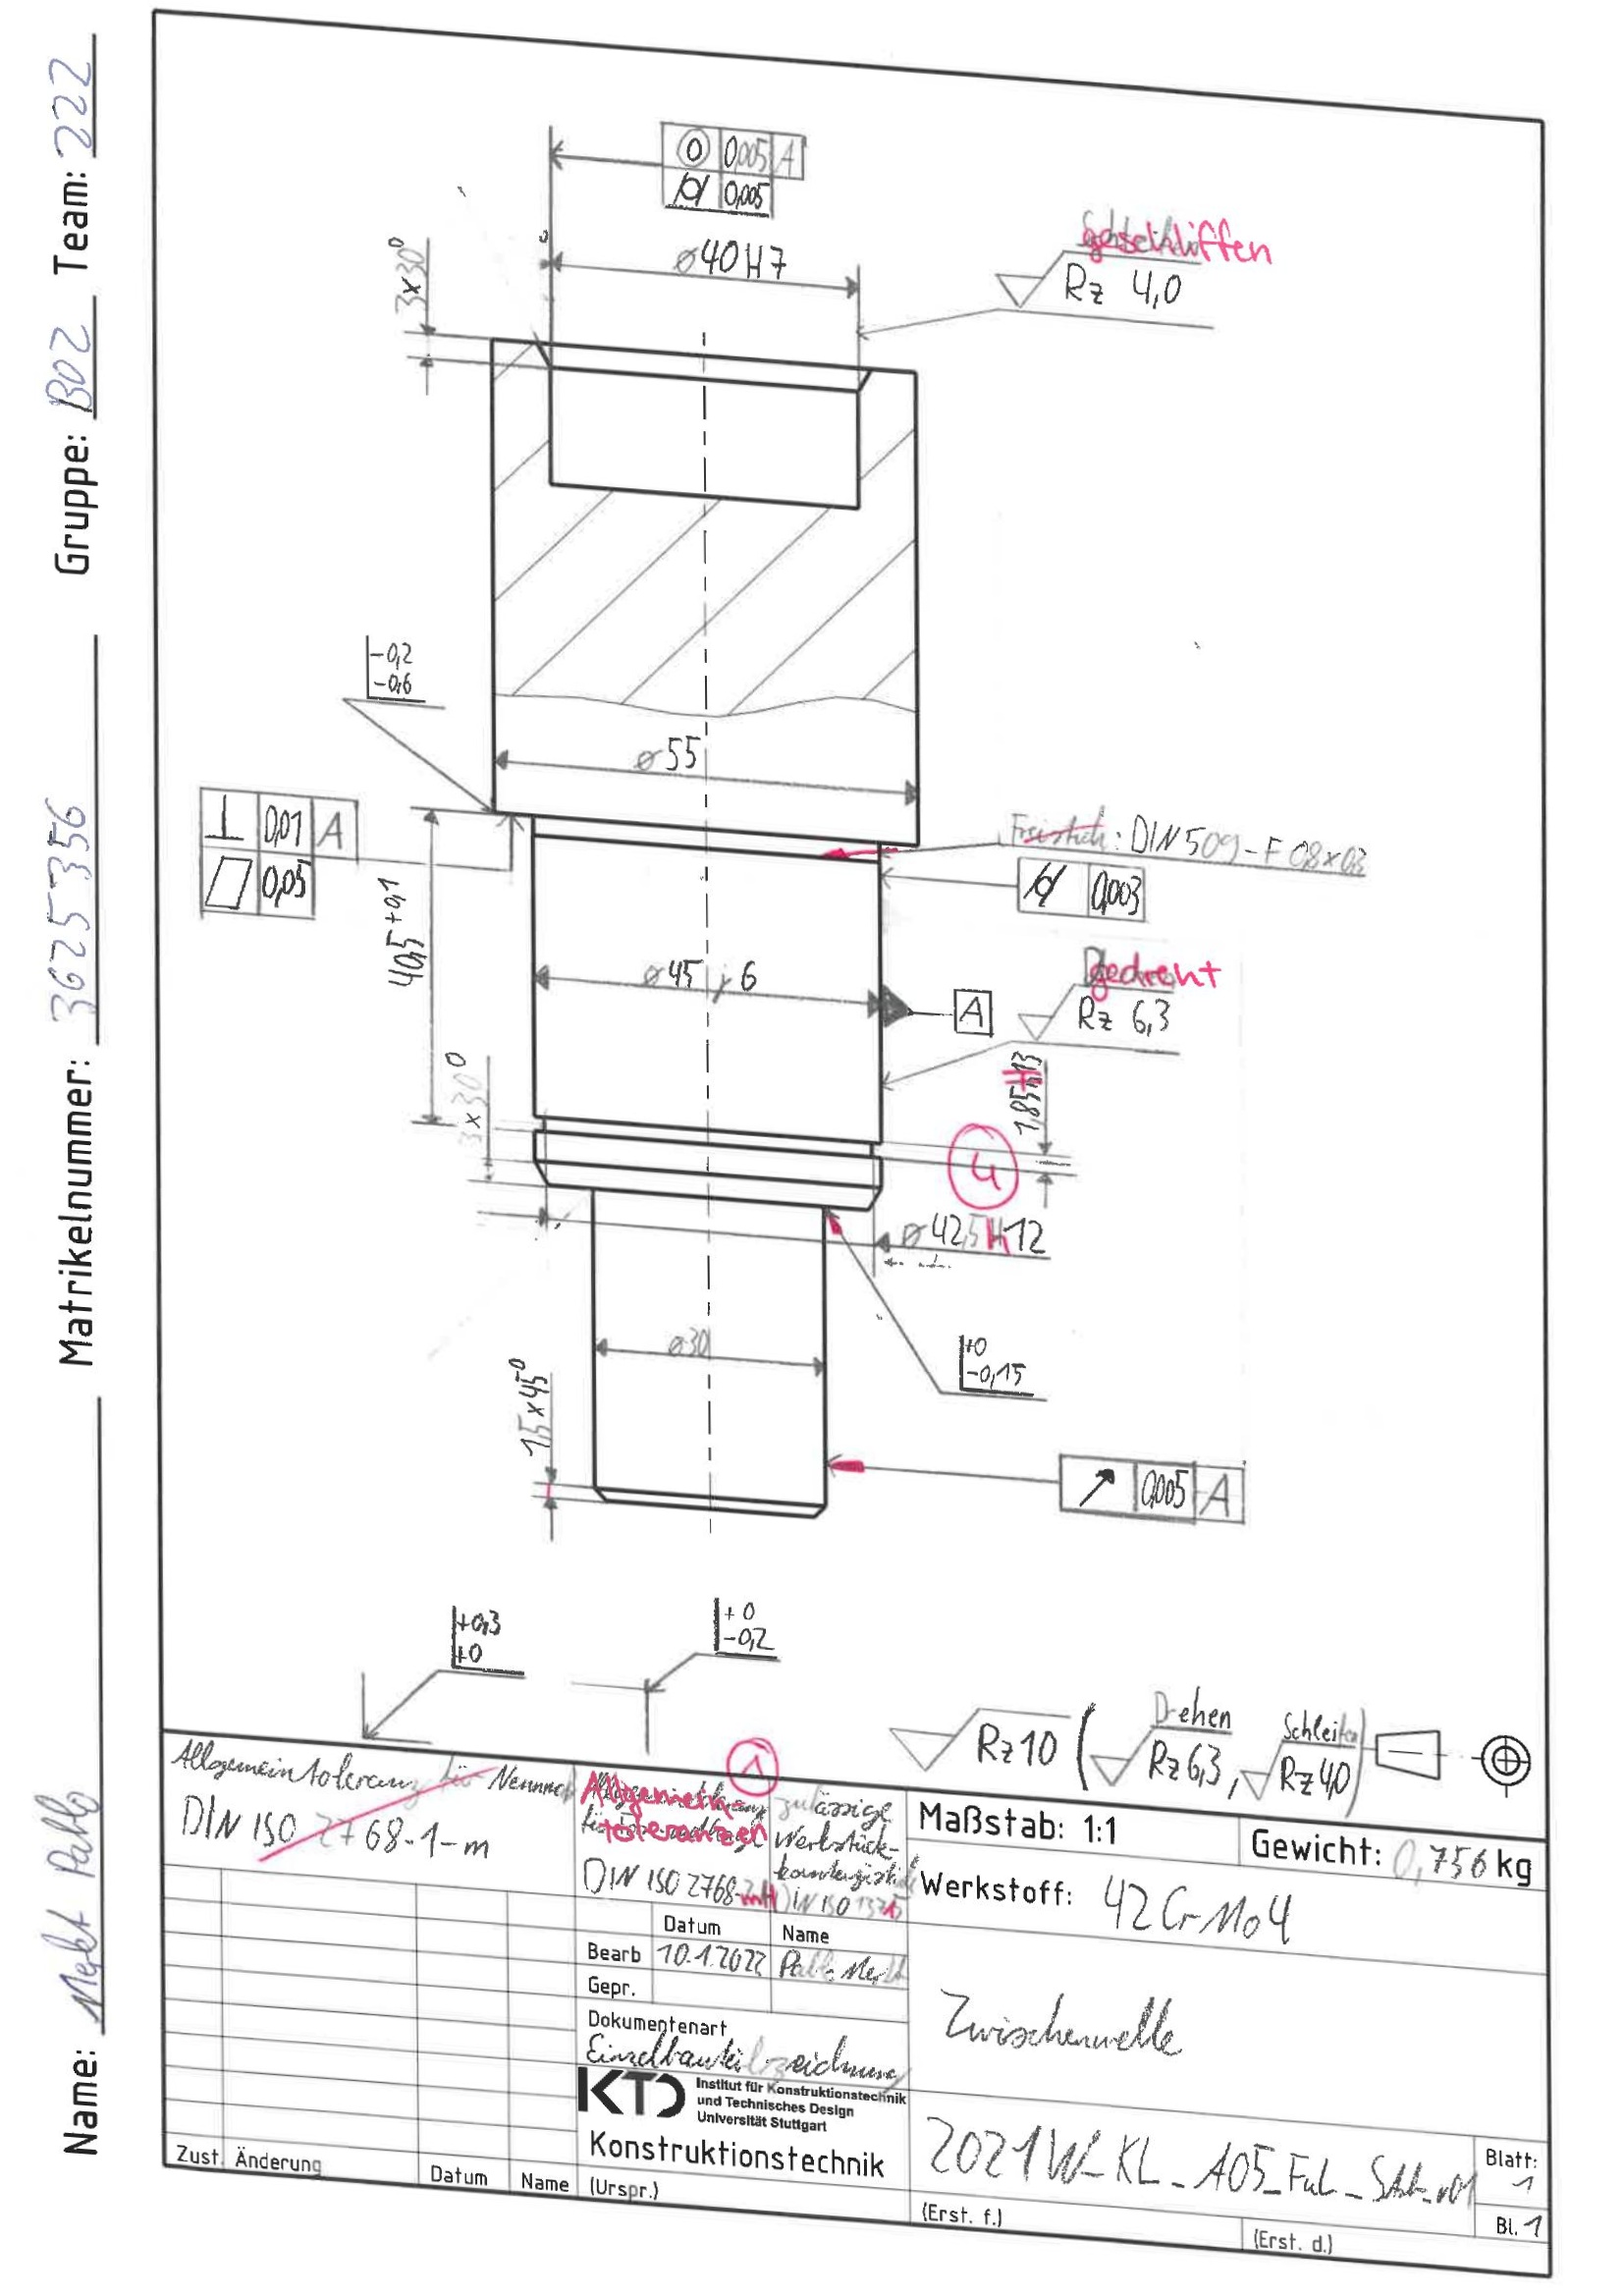 Name: Mebt Pablo Matrikelnummer: 3625356 Gruppe: B02 Team: 222
◎ 0,005 A
⌭ 0,005
3x30°
ø40H7
geschliffen
Rz 4,0
-0,2
-0,6
ø55
⊥ 0,01 A
⏥ 0,05
Freistich: DIN 509-F 0,8x0,3
⌭ 0,003
40,5 +0,1
ø45 j6
A
gedreht
Rz 6,3
3x30°
1,85H13
4
ø42,5H12
ø30
+0
-0,15
1,5x45°
↗ 0,005 A
+0,3
+0
+0
-0,2
Rz10 ( Drehen Rz6,3, Schleifen Rz4,0 )
1
Allgemeintoleranz für
DIN ISO 2768-1-m
Allgemein-
toleranzen
DIN ISO 2768-mH
zulässige
Werkstück-
DIN ISO
Maßstab: 1:1
Gewicht: 0,756 kg
Werkstoff: 42CrMo4
Datum Name
Bearb 10.1.2022
Gepr.
Dokumentenart
Einzelbauteilzeichnung
Zwischenwelle
KTD Institut für Konstruktionstechnik
und Technisches Design
Universität Stuttgart
Konstruktionstechnik
2021W_KL_A05
Blatt:
1
Bl. 1
Zust. Änderung Datum Name (Urspr.) (Erst. f.) (Erst. d.)